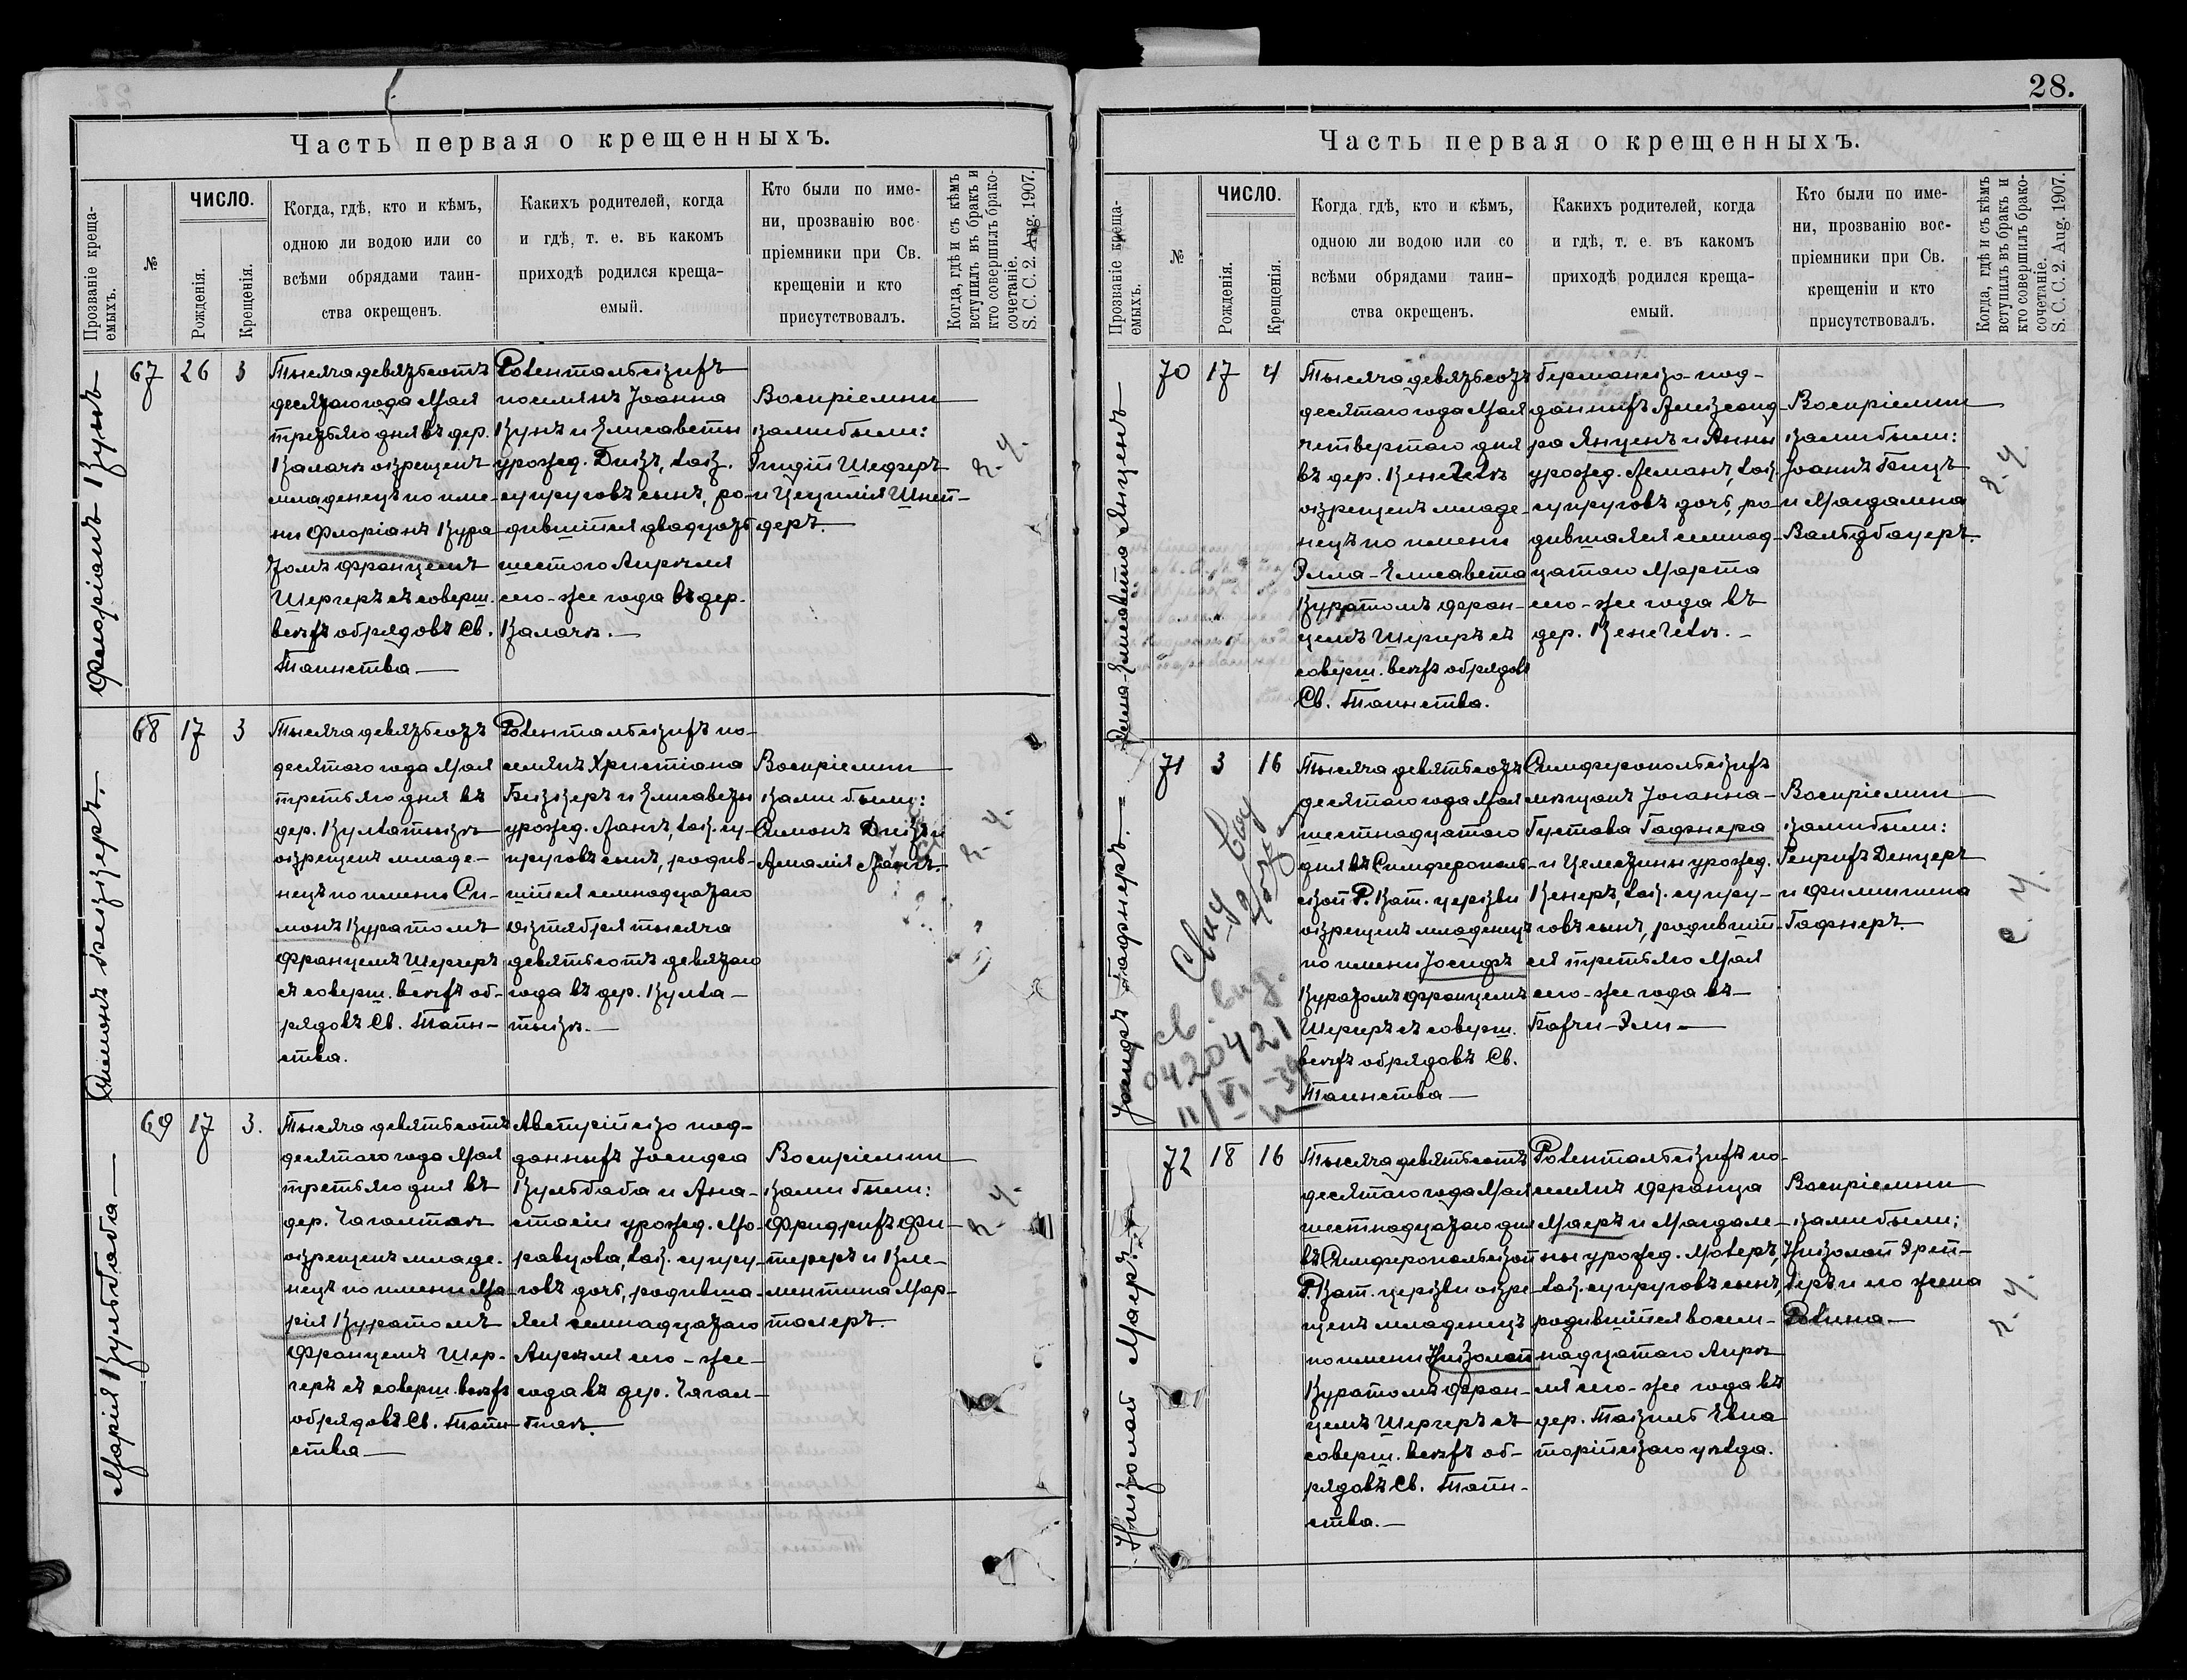 Часть первая о крещенныхъ.
Прозваніе креща-
емыхъ.
№
ЧИСЛО.
Рожденія.
Крещенія.
Когда, гдѣ, кто и кѣмъ,
одною ли водою или со
всѣми обрядами таин-
ства окрещенъ.
Какихъ родителей, когда
и гдѣ, т. е. въ какомъ
приходѣ родился креща-
емый.
Кто были по име-
ни, прозванію вос-
пріемники при Св.
крещеніи и кто
присутствовалъ.
Когда, гдѣ и съ кѣмъ
вступилъ въ бракъ и
кто совершилъ брако-
сочетаніе.
S. C. C. 2. Aug. 1907.
Флоріанъ Кунъ
67
26
3
Тысяча девятьсотъ
десятаго года Мая
третьяго дня въ дер.
Калачъ окрещенъ
младенецъ по име-
ни Флоріанъ Кура
томъ Францемъ
Шергеръ съ соверш.
всѣхъ обрядовъ Св.
Таинства —
Розентальскихъ
поселянъ Іоанна
Кунъ и Елисаветы
урожед. Дикъ, зак.
супруговъ сынъ, ро-
дившійся двадцать
шестого Апрѣля
сего-же года въ дер.
Калачъ. —
Воспріемни
ками были:
Эгидій Шеферъ
и Цецилія Шней-
деръ. —
Симонъ Бекзеръ.
68
17
3
Тысяча девятьсотъ
десятаго года Мая
третьяго дня въ
дер.
окрещенъ младе-
нецъ по имени Си-
монъ Куратомъ
Францемъ Шергеръ
съ соверш. всѣхъ об-
рядовъ Св. Таин-
ства.
Розентальскихъ по-
селянъ Христіана
и Елисаветы
урожед. Лангъ, зак. су-
пруговъ сынъ, родив-
шійся семнадцатаго
Октября тысяча
девятьсотъ девятаго
года въ дер.
Воспріемни
ками были:
Симонъ Дикъ и
Амалія Лангъ.
Марія Кульбаба —
69
17
3.
Тысяча девятьсотъ
десятаго года Мая
третьяго дня въ
дер. Чагалтакъ
окрещенъ младе-
нецъ по имени Ма-
рія Куратомъ
Францемъ Шер-
геръ съ соверш. всѣхъ
обрядовъ Св. Таин
ства —
Австрійско под-
данныхъ Іосифа
Кульбаба и Ана-
стасіи урожед. Мо-
равцова, зак. супру-
говъ дочь, родивша-
яся семнадцатаго
Апрѣля сего-же —
года въ дер. Чагал-
такъ.
Воспріемни
ками были:
Фридрихъ Фи-
тереръ и Кле-
ментина Мар-
талеръ.
28.
Часть первая о крещенныхъ.
Прозваніе креща-
емыхъ.
№
ЧИСЛО.
Рожденія.
Крещенія.
Когда гдѣ, кто и кѣмъ,
одною ли водою или со
всѣми обрядами таин-
ства окрещенъ.
Какихъ родителей, когда
и гдѣ, т. е. въ какомъ
приходѣ родился креща-
емый.
Кто были по име-
ни, прозванію вос-
пріемники при Св.
крещеніи и кто
присутствовалъ.
Когда, гдѣ и съ кѣмъ
вступилъ въ бракъ и
кто совершилъ брако-
сочетаніе.
S. C. C. 2. Aug. 1907.
Элла-Елисавета Янценъ
70
17
4
Тысяча девятьсотъ
десятаго года Мая
четвертаго дня
въ дер. Кенегезъ
окрещенъ младе-
нецъ по имени
Элла-Елисавета
Куратомъ Фран-
цемъ Шергеръ съ
соверш. всѣхъ обрядовъ
Св. Таинства.
Германско-под-
данныхъ Александ-
ра Янценъ и Анны
урожед. Леманъ, зак.
супруговъ дочь, ро-
дившаяся семнад-
цатаго Марта
сего-же года въ
дер. Кенегезъ. —
Воспріемни
ками были:
Іоаннъ Бицъ
и Магдалина
Вальдбауеръ.
Іосифъ Гафнеръ. —
71
3
16
Тысяча девятьсотъ
десятаго года Мая
шестнадцатаго
дня въ Симферополь-
ской Р. Кат. церкви
окрещенъ младенецъ
по имени Іосифъ
Куратомъ Францемъ
Шергеръ съ соверш.
всѣхъ обрядовъ Св.
Таинства —
Симферопольскихъ
мѣщанъ Іоганна-
Густава Гафнера
и Целестины урожед.
Кенеръ, зак. супру-
говъ сынъ, родившій-
ся третьяго Мая
сего-же года въ —
Бахчи-Эли —
Воспріемни
ками были:
Генрихъ Денцеръ
и Филиппина
Гафнеръ.
св. выд.
0420421
11/VI-39
Николай Маеръ.
72
18
16
Тысяча девятьсотъ
десятаго года Мая
шестнадцатаго дня
въ Симферопольской
Р. Кат. церкви окре-
щенъ младенецъ
по имени Николай
Куратомъ Фран-
цемъ Шергеръ съ
соверш. всѣхъ об-
рядовъ Св. Таин-
ства. —
Розентальскихъ по-
селянъ Франца
Маеръ и Магдале-
ны урожед. Мозеръ,
зак. супруговъ сынъ,
родившійся восем-
надцатаго Апрѣ
ля сего-же года въ
дер. Такиль Евпа
торійскаго уѣзда.
Воспріемни
ками были:
Николай Эрей-
зеръ и его жена
Розина —